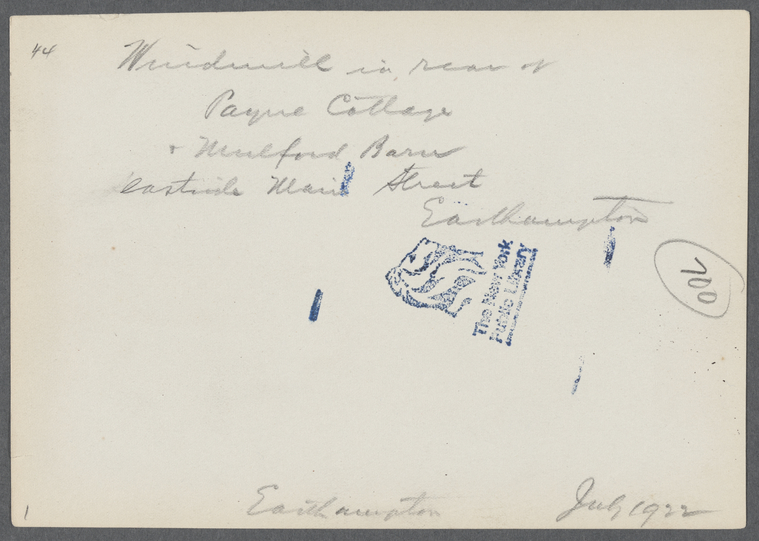 44
Windmill in rear of
Payne Cottage
+ Mulford Barn
eastside Main Street
Easthampton
700
The New York
Public Library
Easthampton July 1922
1